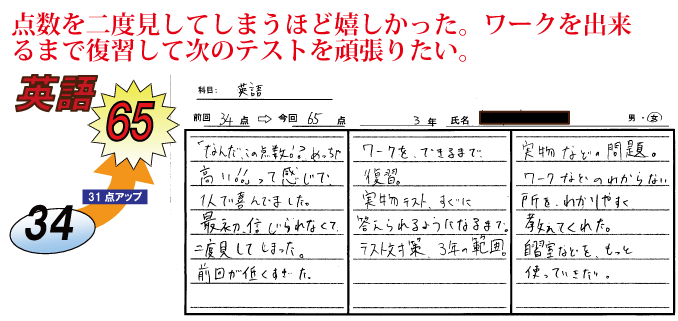 点数を二度見してしまうほど嬉しかった。ワークを出来
るまで復習して次のテストを頑張りたい。
英語
65
31点アップ
34
科目： 英語
前回 34 点 ⇨ 今回 65 点 3 年 氏名 男・女
「なんだ、この点数!!?めっちゃ
高い!!」って感じで、
1人で喜んでました。
最初、信じられなくて、
二度見してしまった。
前回が低くすぎた。
ワークを、できるまで
復習。
実物テスト、すぐに
答えられるようになるまで。
テスト対策、3年の範囲。
実物などの問題。
ワークなどのわからない
所を、わかりやすく
教えてくれた。
自習室などを、もっと
使っていきたい。